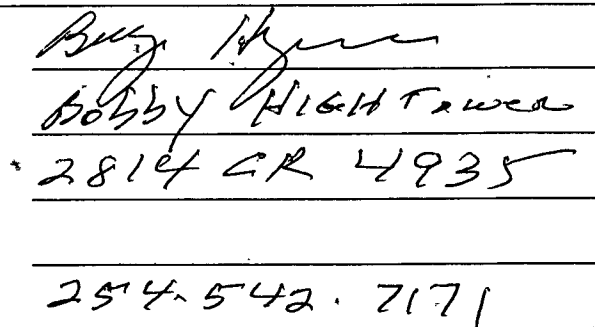 Bobby HIGHTOWER
2814 CR 4935
254.542.7171